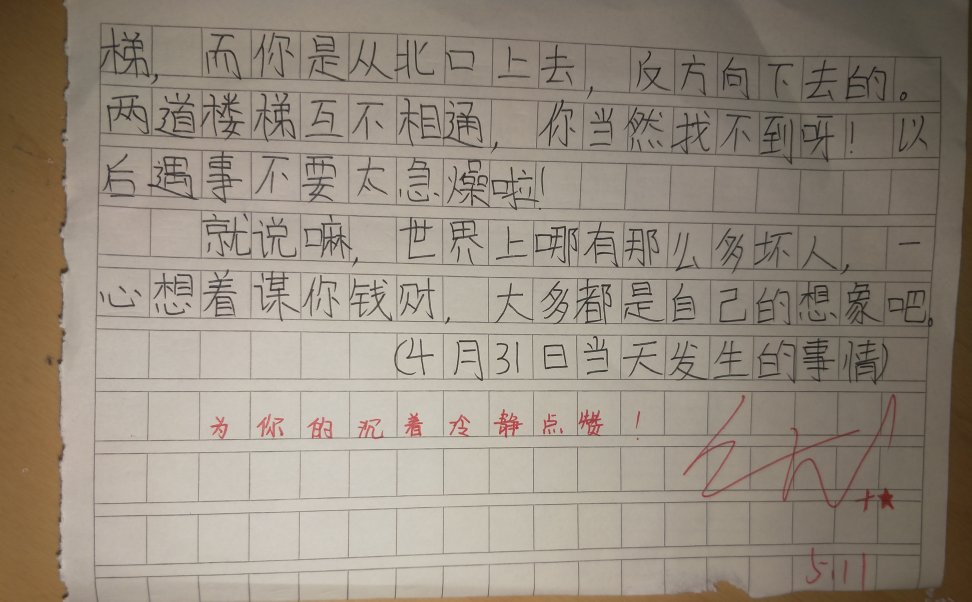 梯，而你是从北口上去，反方向下去的。
两道楼梯互不相通，你当然找不到呀！以
后遇事不要太急燥啦！
就说嘛，世界上哪有那么多坏人，一
心想着谋你钱财，大多都是自己的想象吧。
(4月31日当天发生的事情)
为你的沉着冷静点赞！
+★
5.11